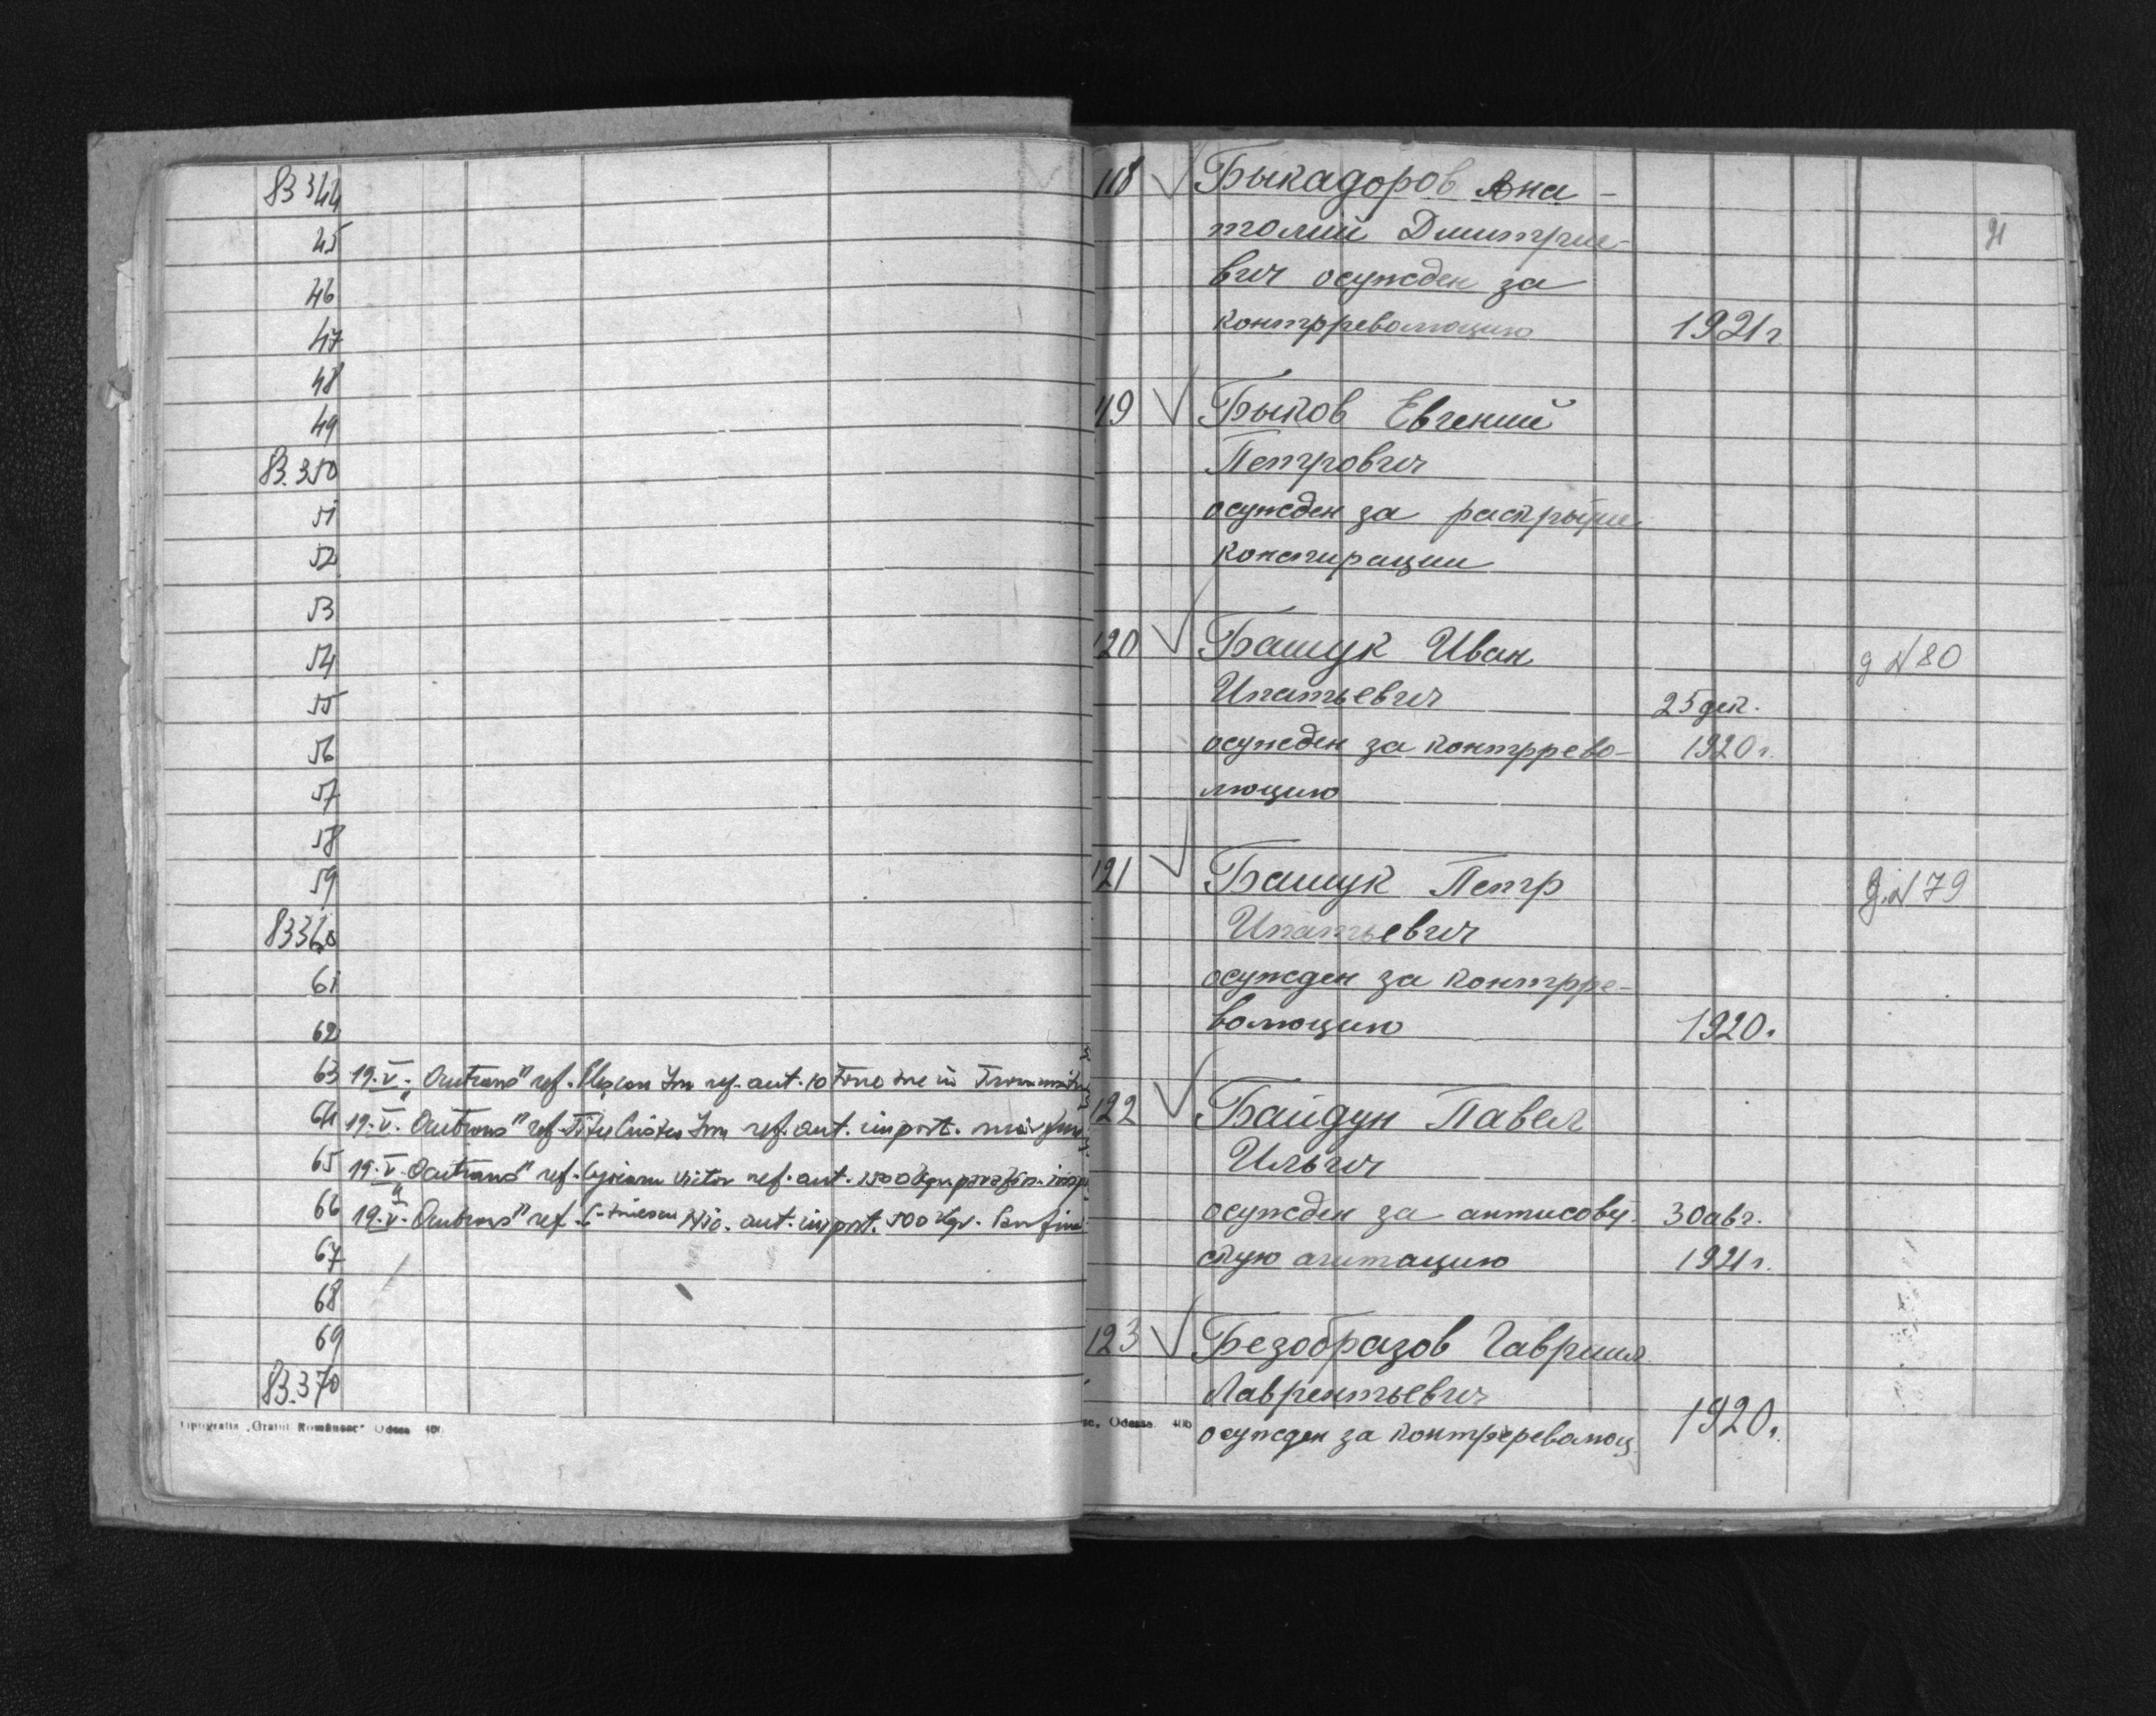 83344
45
46
47
48
49
83.350
51
52
53
54
55
56
57
58
59
83360
61
62
63 19.V. „Outrans" ref. ref. aut. 10 tone
64 19.V. „Outrans" ref. ref. aut. import.
65 19.V. „Outrans" ref. Victor ref. aut. 1500 kgr.
66 19.V. „Outrans" ref. aut. import. 500 kgr.
67
68
69
83.370
Tipografia „Graiul Românesc" Odesa
118 Быкадоров Ана-
толий Дмитрие-
вич осужден за
контрреволюцию 1921г
119 Быков Евгений
Петрович
осужден за раскрытие
конспирации
120 Башук Иван д N80
Ипатьевич 25 дек.
осужден за контррево- 1920г.
люцию
121 Башук Петр д. N79
Ипатьевич
осужден за контрре-
волюцию 1920г.
122 Байдун Павел
Ильич
осужден за антисовет 30 авг.
скую агитацию 1921г.
123 Безобразов Гавриил
Лаврентьевич
осужден за контрреволюц. 1920г.
sc, Odessa.